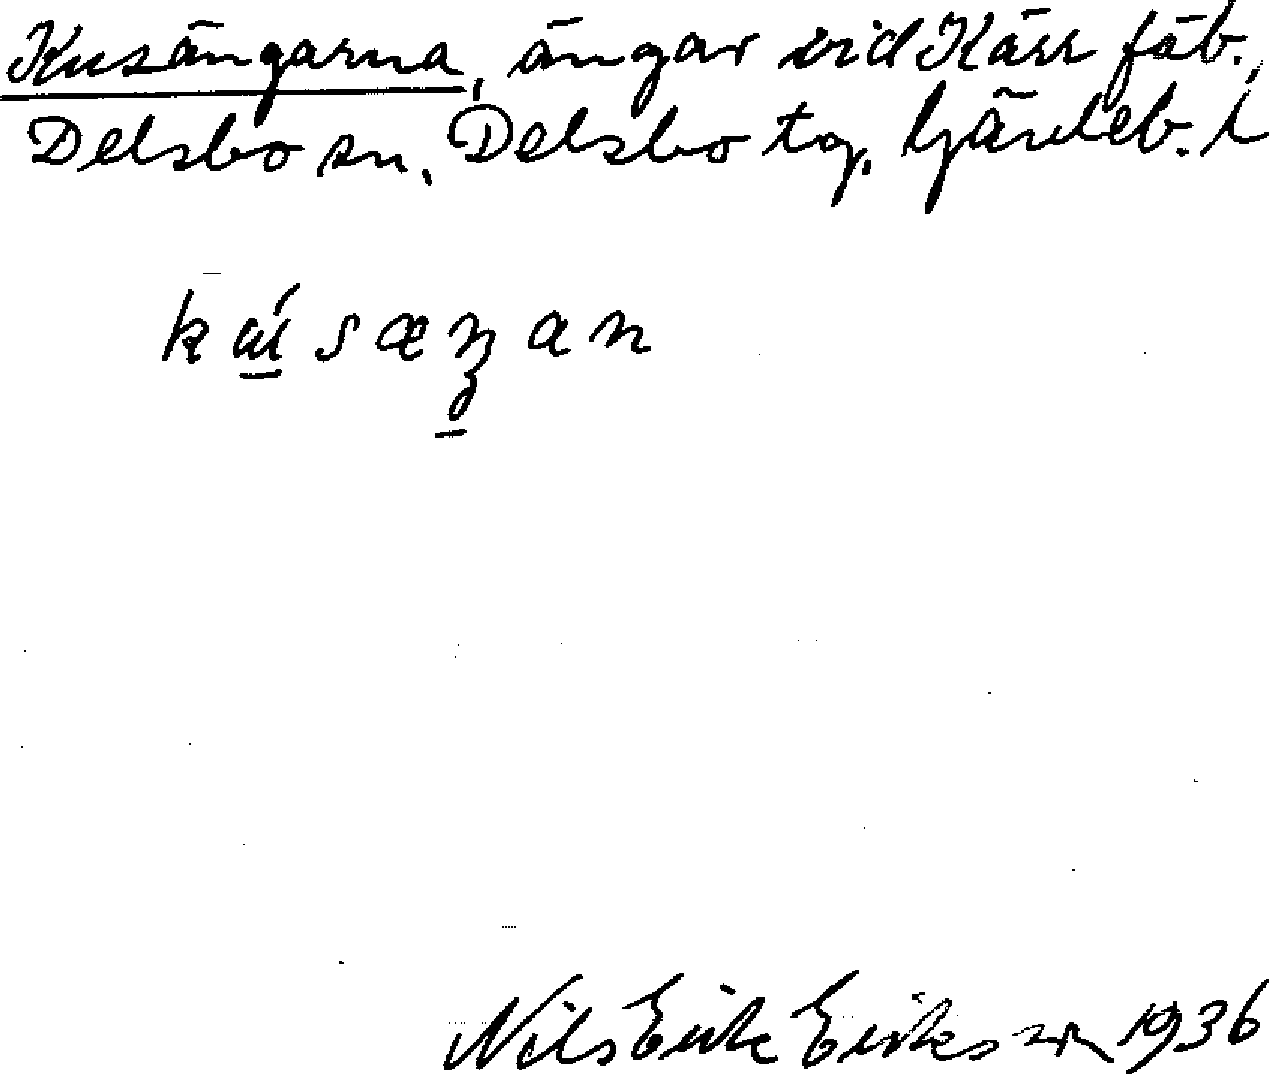 Kusängarna, ängar vid Kärr fäb.,
Delsbo sn, Delsbo tg, Gävleb. l
Nils Erik Eriksson 1936